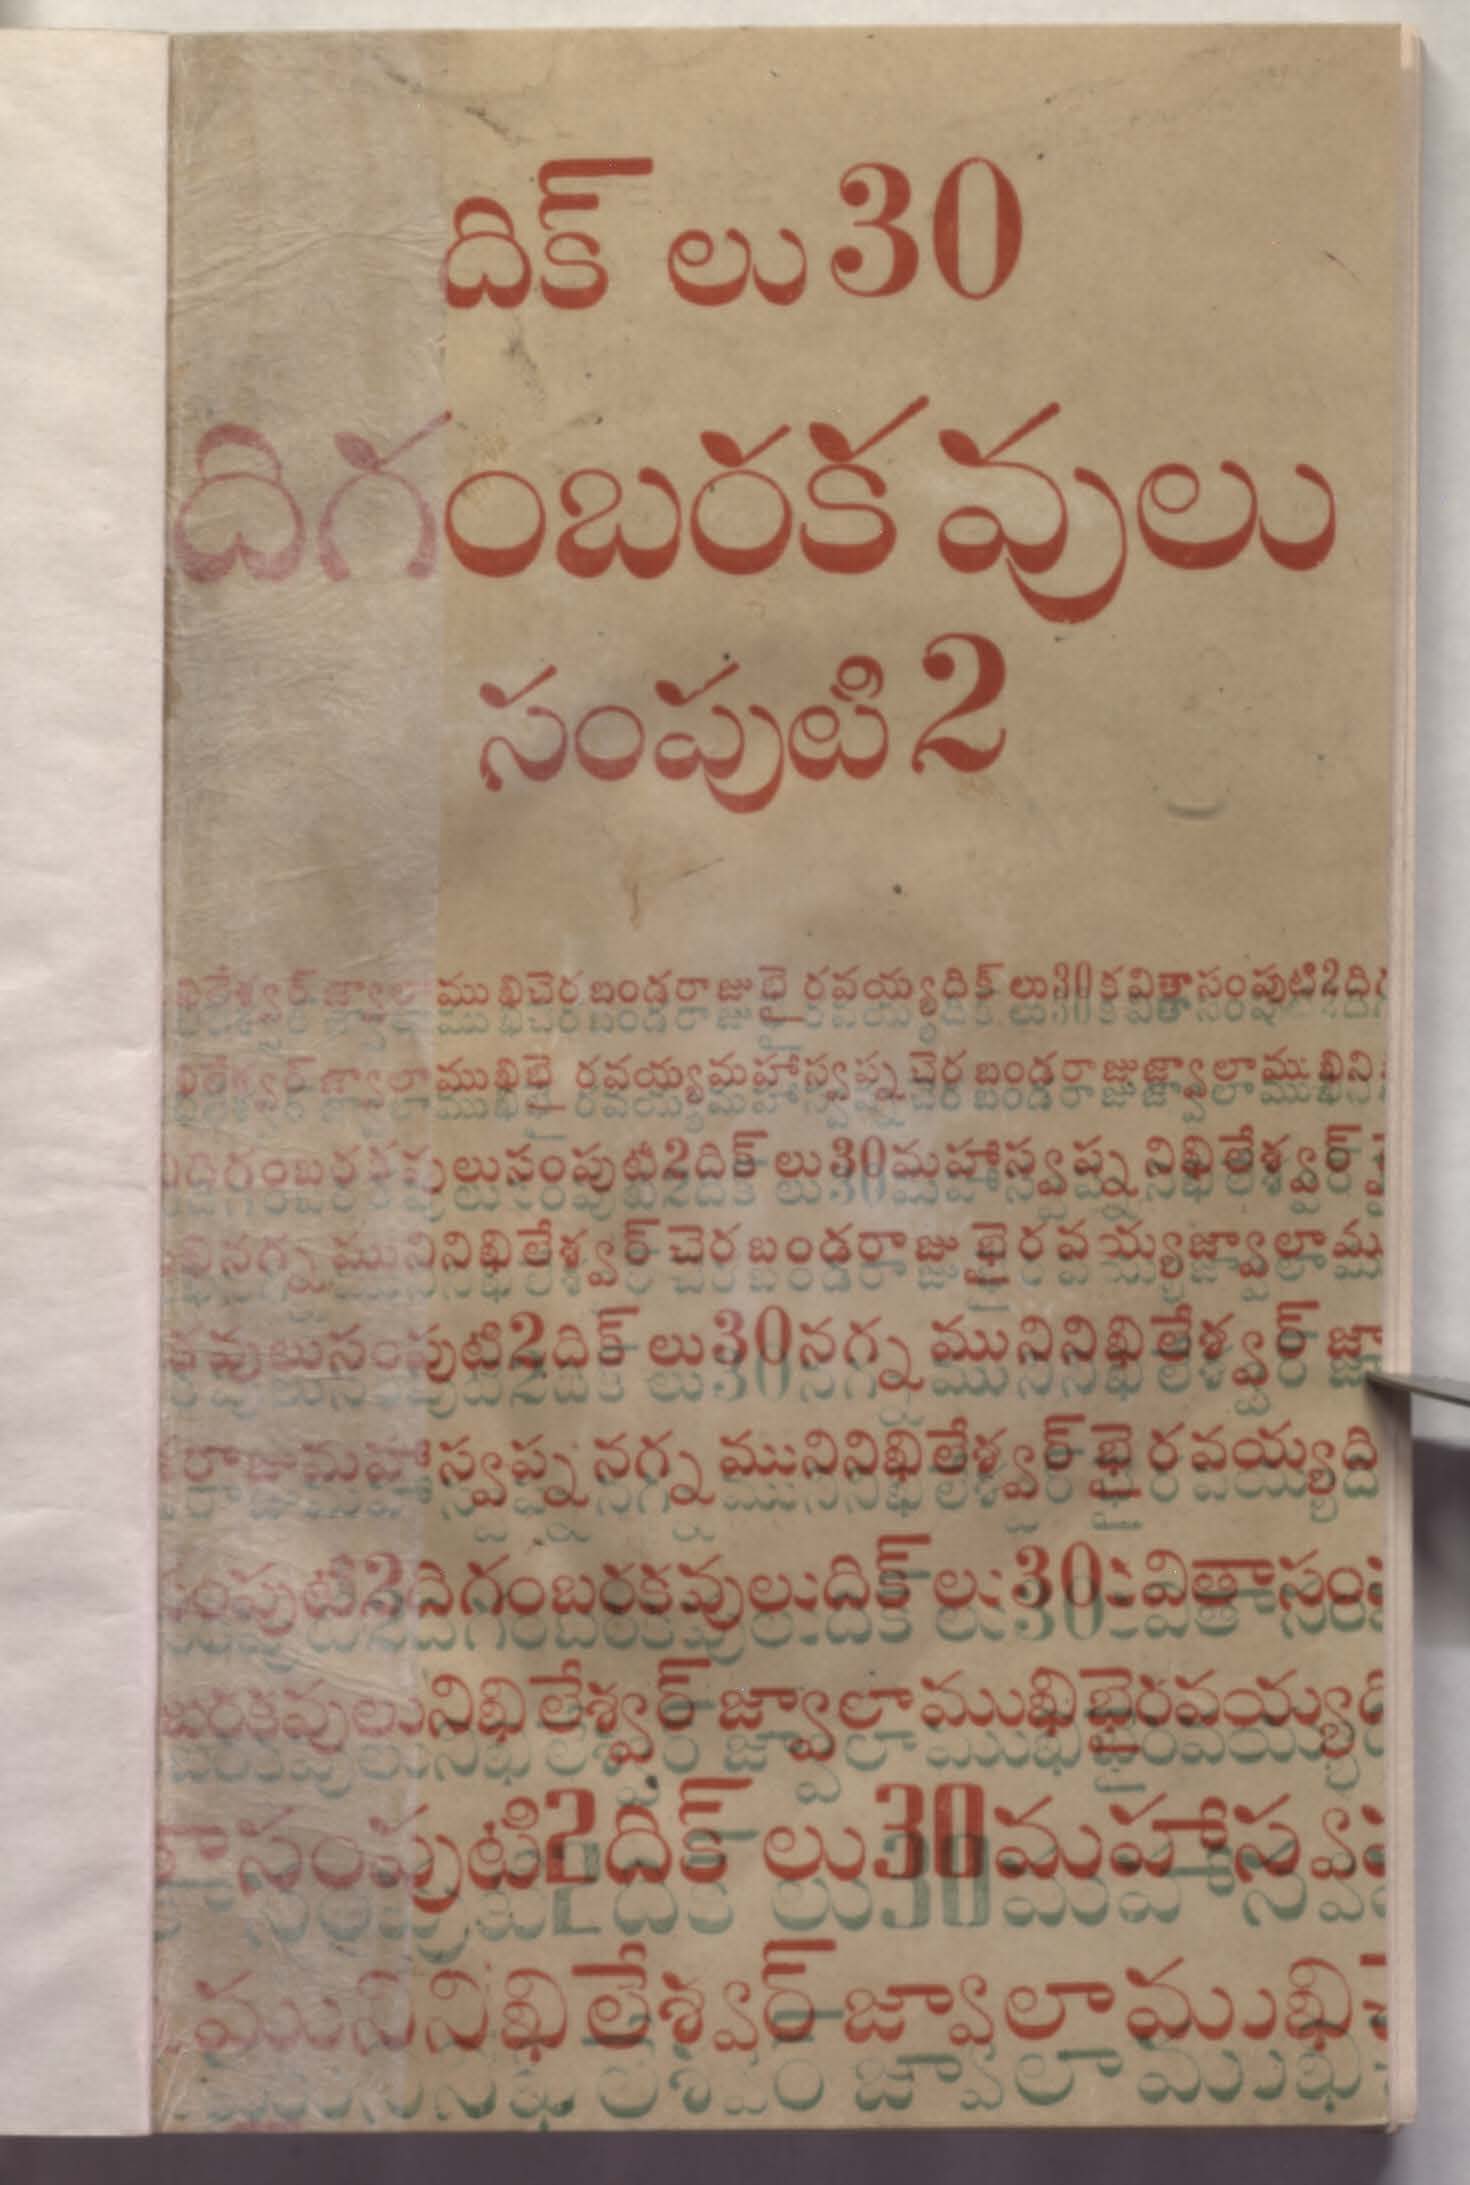 దిక్ లు 30
దిగంబరకవులు
సంపుటి 2
ఖిలేశ్వర్ జ్వాలాముఖిచెరబండరాజుభైరవయ్యదిక్ లు30కవితాసంపుటి2దిగ
ఖిలేశ్వర్ జ్వాలాముఖిభైరవయ్యమహాస్వప్నచెరబండరాజుజ్వాలాముఖిని
దిగంబరకవులుసంపుటి2దిక్ లు30మహాస్వప్ననిఖిలేశ్వర్
ఖినగ్నమునినిఖిలేశ్వర్ చెరబండరాజుభైరవయ్యజ్వాలాము
కవులుసంపుటి2దిక్ లు30నగ్నమునినిఖిలేశ్వర్ జ్వా
రాజుమహాస్వప్ననగ్నమునినిఖిలేశ్వర్ భైరవయ్యది
సంపుటి2దిగంబరకవులుదిక్ లు30కవితాసం
బరకవులునిఖిలేశ్వర్ జ్వాలాముఖిభైరవయ్యది
తాసంపుటి2దిక్ లు30మహాస్వ
మునినిఖిలేశ్వర్ జ్వాలాముఖి